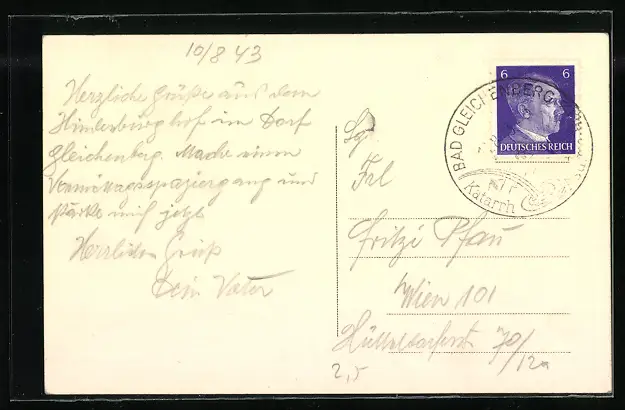 10/8 43
Herzliche Grüße aus dem
Hindenburghof im Dorf
Gleichenberg. Mache einen
Vormittagsspaziergang und
stärke mich jetzt
Herzlichen Gruß
Dein Vater
6 6
DEUTSCHES REICH
BAD GLEICHENBERG
Katarrh
Frl
Fritzi Pfau
Wien 101
Hütteldorferstr 70/12a
2,5